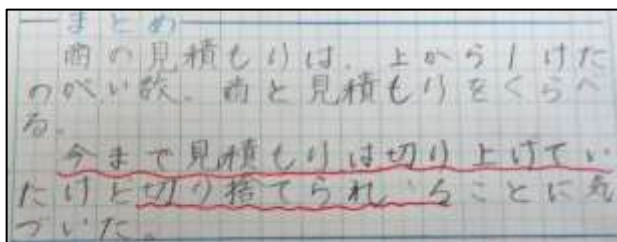 まとめ
商の見積もりは、上から1けた
のがい数。商と見積もりをくらべ
る。
今まで見積もりは切り上げてい
たけど切り捨てられることに気
づいた。